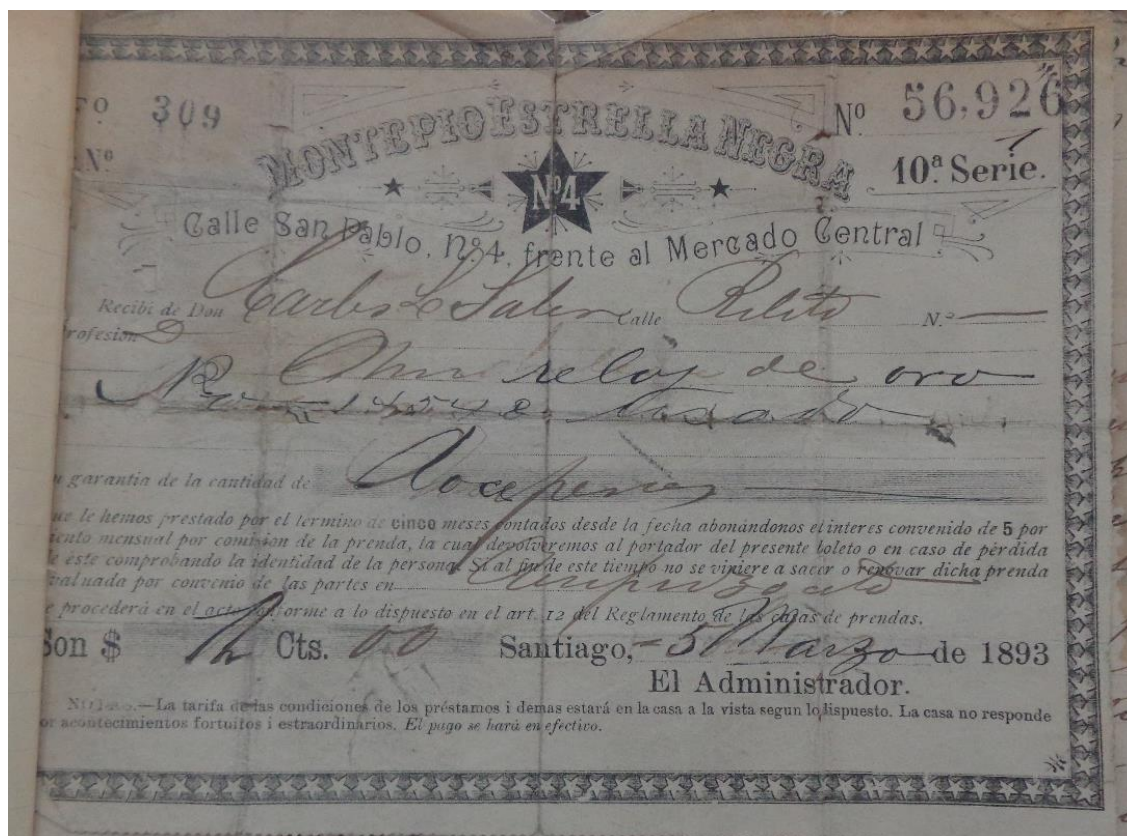 309
Nº 56,926
Nº
10.ª Serie.
MONTEPIO ESTRELLA NEGRA
Nº4
Calle San Pablo, Nº.4, frente al Mercado Central
Recibi de Don Carlos Calle N.º
rofesion
Un reloj de oro
No usado
garantia de la cantidad de Doce pesos
ue le hemos prestado por el termino de cinco meses contados desde la fecha abonándonos el interes convenido de 5 por
iento mensual por comision de la prenda, la cual devolveremos al portador del presente boleto o en caso de pérdida
e este comprobando la identidad de la persona. Si al fin de este tiempo no se viniere a sacar o renovar dicha prenda
valuada por convenio de las partes en
e procederá en el acto conforme a lo dispuesto en el art. 12 del Reglamento de las casas de prendas.
Son $ 12 Cts. 00 Santiago, 5 Marzo de 1893
El Administrador.
La tarifa de las condiciones de los préstamos i demas estará en la casa a la vista segun lo dispuesto. La casa no responde
or acontecimientos fortuitos i estraordinarios. El pago se hará en efectivo.